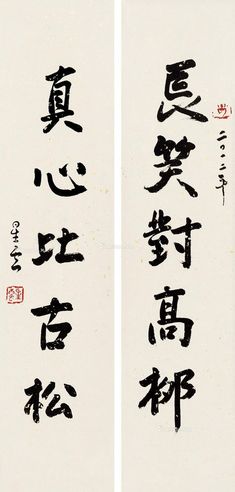 長笑對高柳
二〇一二年
真心比古松
星云